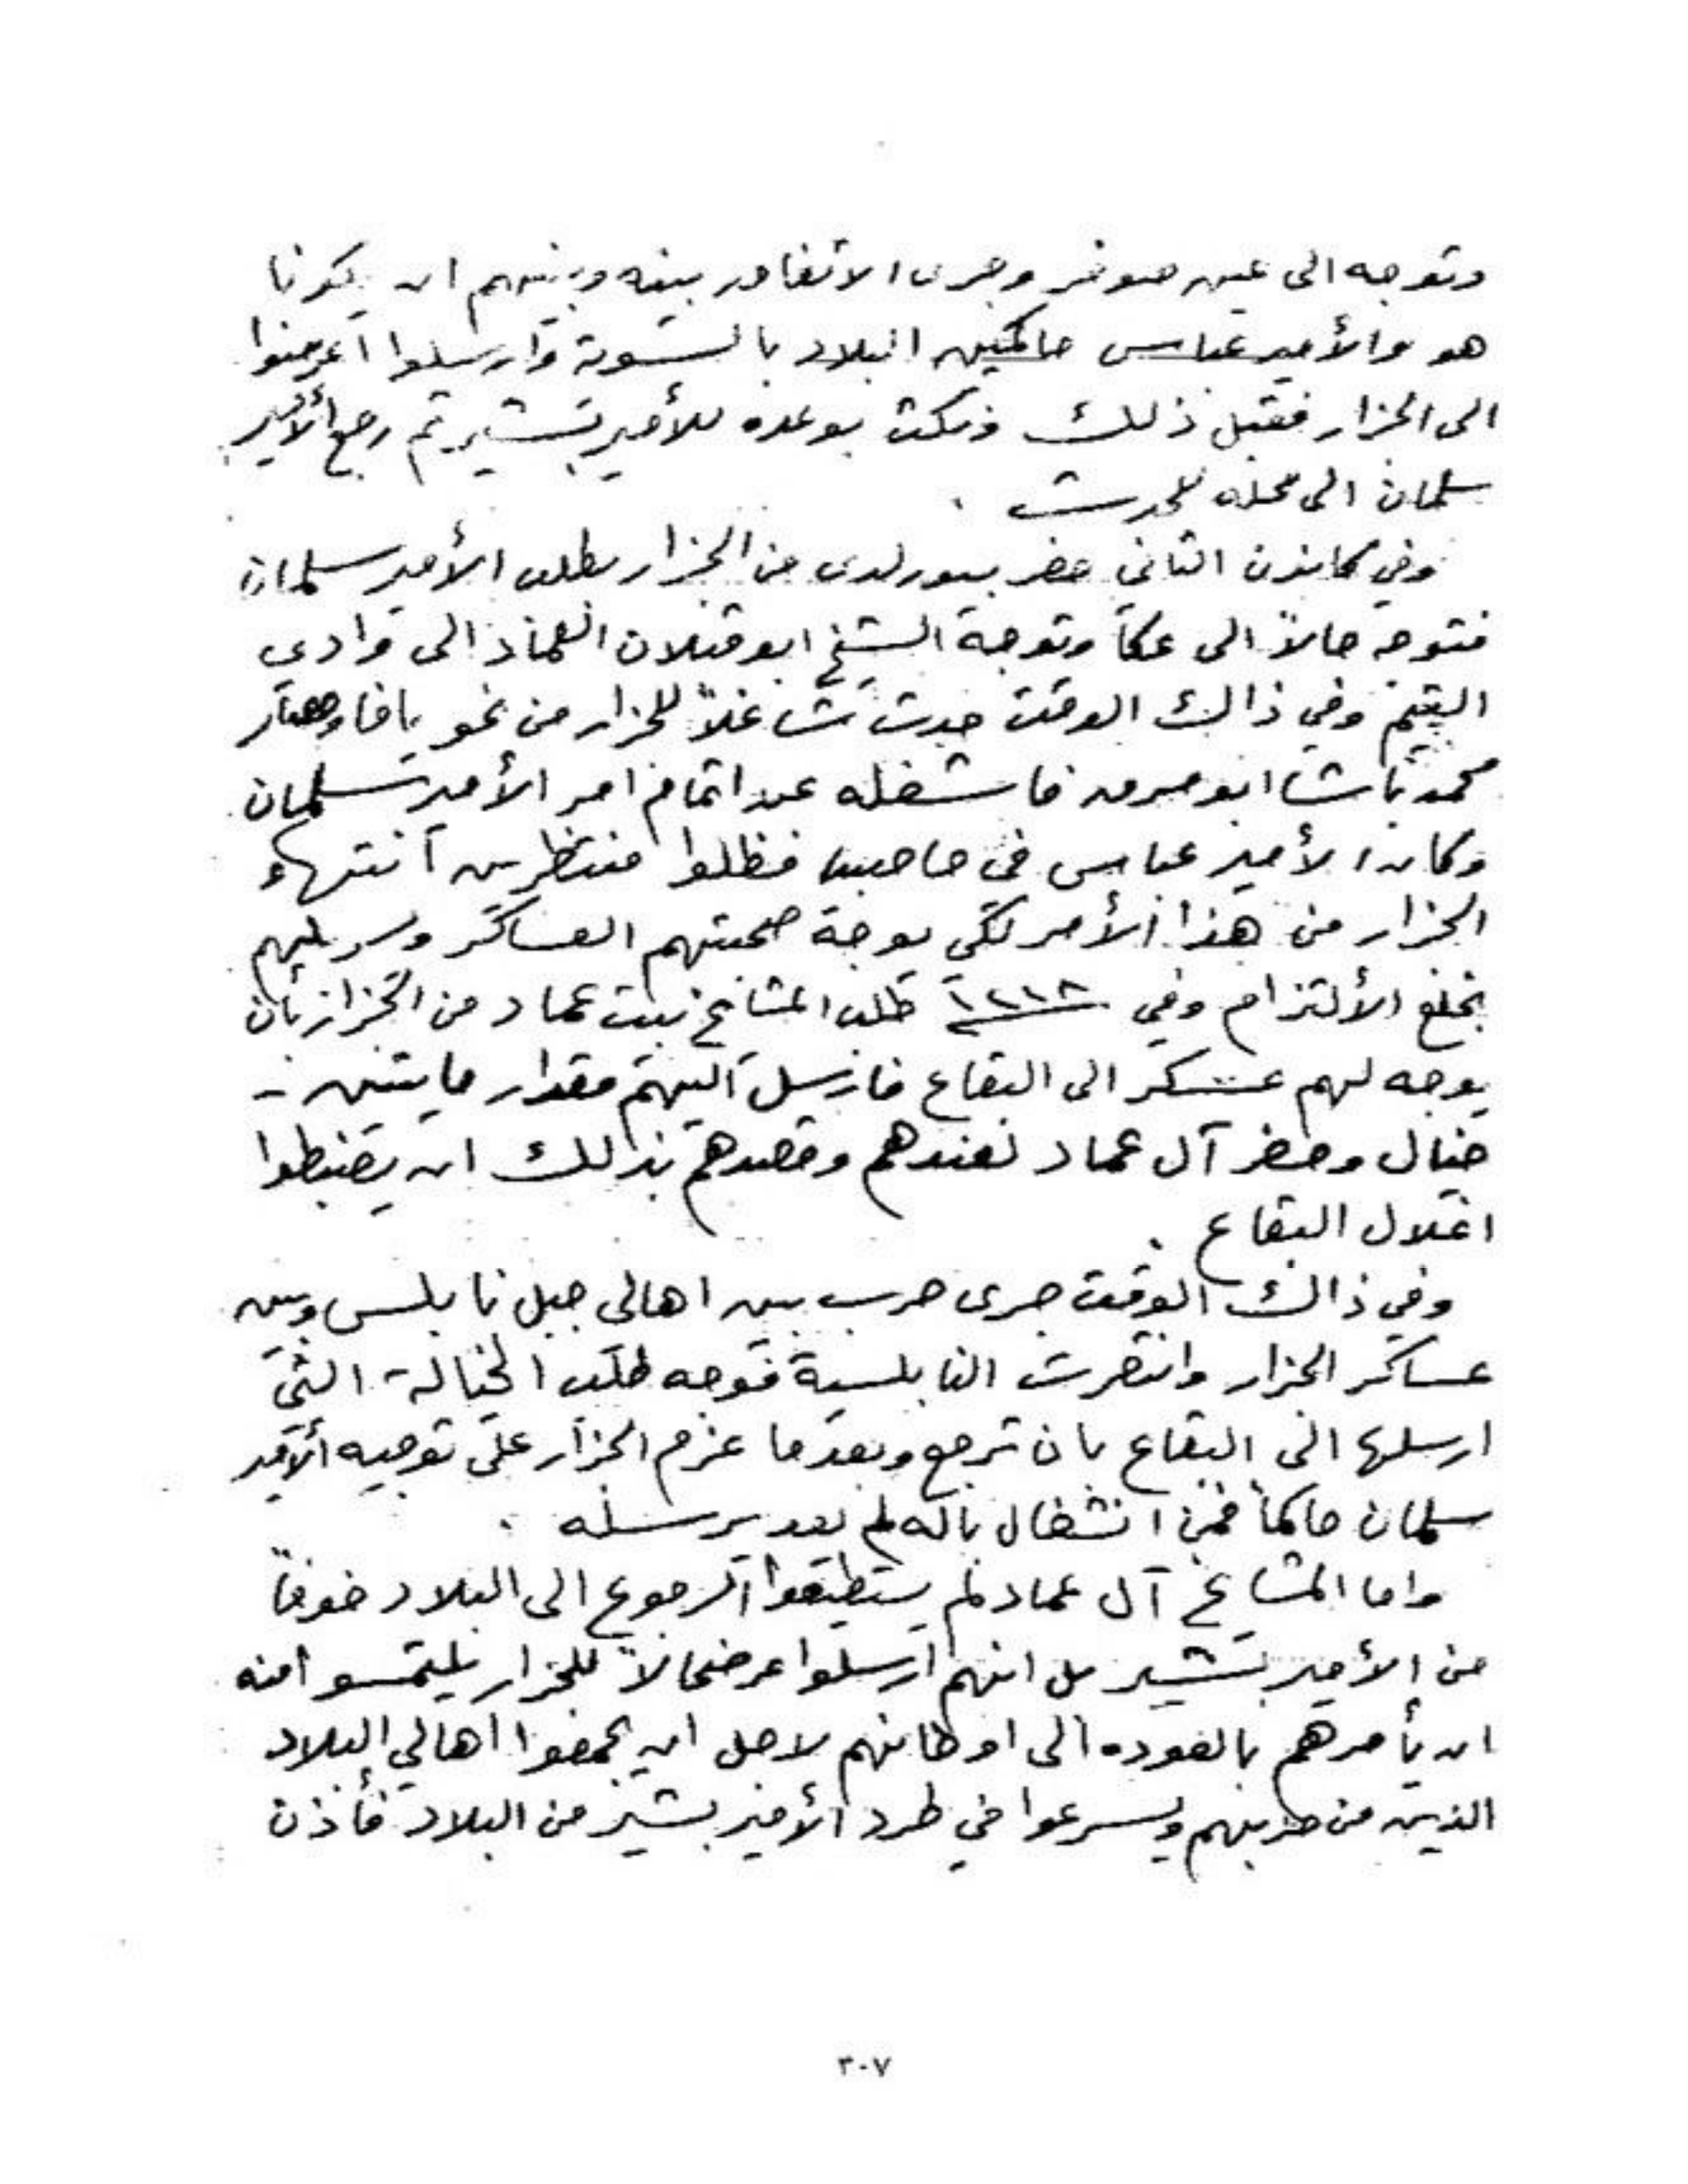 وتوجه الى عين صوفر وجرى الاتفاق بينه وبينهم ان يكونا
هو والأمير عباس حاكمين البلاد بالسوية وارسلوا اعرضوا
الى الجزار فقبل ذلك ونكث بوعده للأمير بشير ثم رجع الأمير
سلمان الى محله للحدث .
وفي كانون الثاني حضر بيورلدى من الجزار بطلب الأمير سلمان
فتوجه حالاً الى عكا وتوجه الشيخ ابو قبلان العماد الى وادي
التيم وفي ذالك الوقت حدث شاغلاً للجزار من نحو يافا وحصار
محمد باشا ابو مرق فاشغله عن اتمام امر الأمير سلمان
وكان الأمير عباس في حاصبيا فظلوا منتظرين انتهاء
الجزار من هذا الأمر لكي يوجه صحبتهم العساكر ويرسليهم
بخلع الألتزام وفي ١٢١٨ طلب المشايخ بيت عماد من الجزار بان
يوجه لهم عسكر الى البقاع فارسل اليهم مقدار مايتين -
خيال وحضر آل عماد لعندهم وقصدهم بذالك ان يضبطوا
اغلال البقاع .
وفي ذالك الوقت جرى حرب بين اهالي جبل نابلس وبين
عساكر الجزار وانتصرت النابلسية فوجه طلب الخيالة التي
ارسلها الى البقاع بان ترجع وبعدما عزم الجزار على توجيه الأمير
سلمان حاكماً فمن انشغال باله لم يعد يرسله .
واما المشايخ آل عماد لم يستطيعوا الرجوع الى البلاد خوفاً
من الأمير بشير بل انهم ارسلوا عرضحالاً للجزار يلتمسوا منه
ان يأمرهم بالعوده الى اوطانهم لاجل ان يجمعوا اهالي البلاد
الذين من حزبهم ويسرعوا في طرد الأمير بشير من البلاد فأذن
٣٠٧